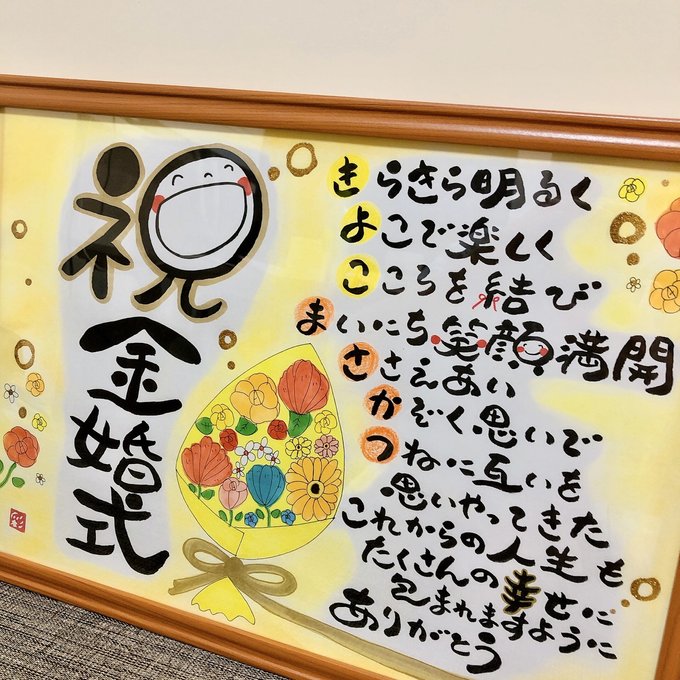 祝
金婚式
きらきら明るく
よこで楽しく
こころを結び
まいにち笑顔満開
ささえあい
かぞく思いで
つねに互いを
思いやってきた
これからの人生も
たくさんの幸せに
包まれますように
ありがとう